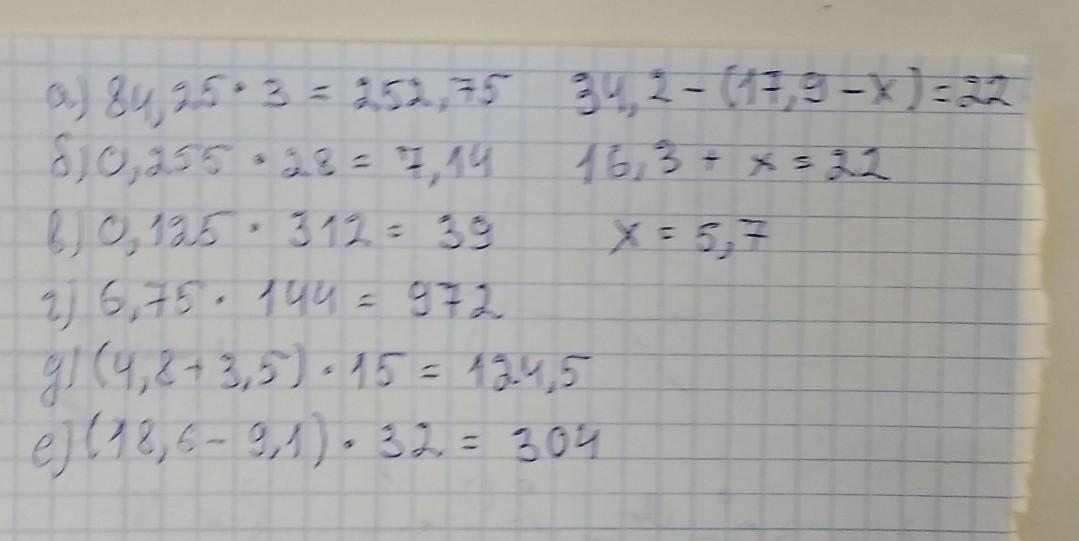 а) 84,25 · 3 = 252,75 34,2 - (17,9 - x) = 22
б) 0,255 · 28 = 7,14 16,3 + x = 22
в) 0,125 · 312 = 39 x = 5,7
г) 6,75 · 144 = 972
д) (4,8 + 3,5) · 15 = 124,5
е) (18,6 - 9,1) · 32 = 304